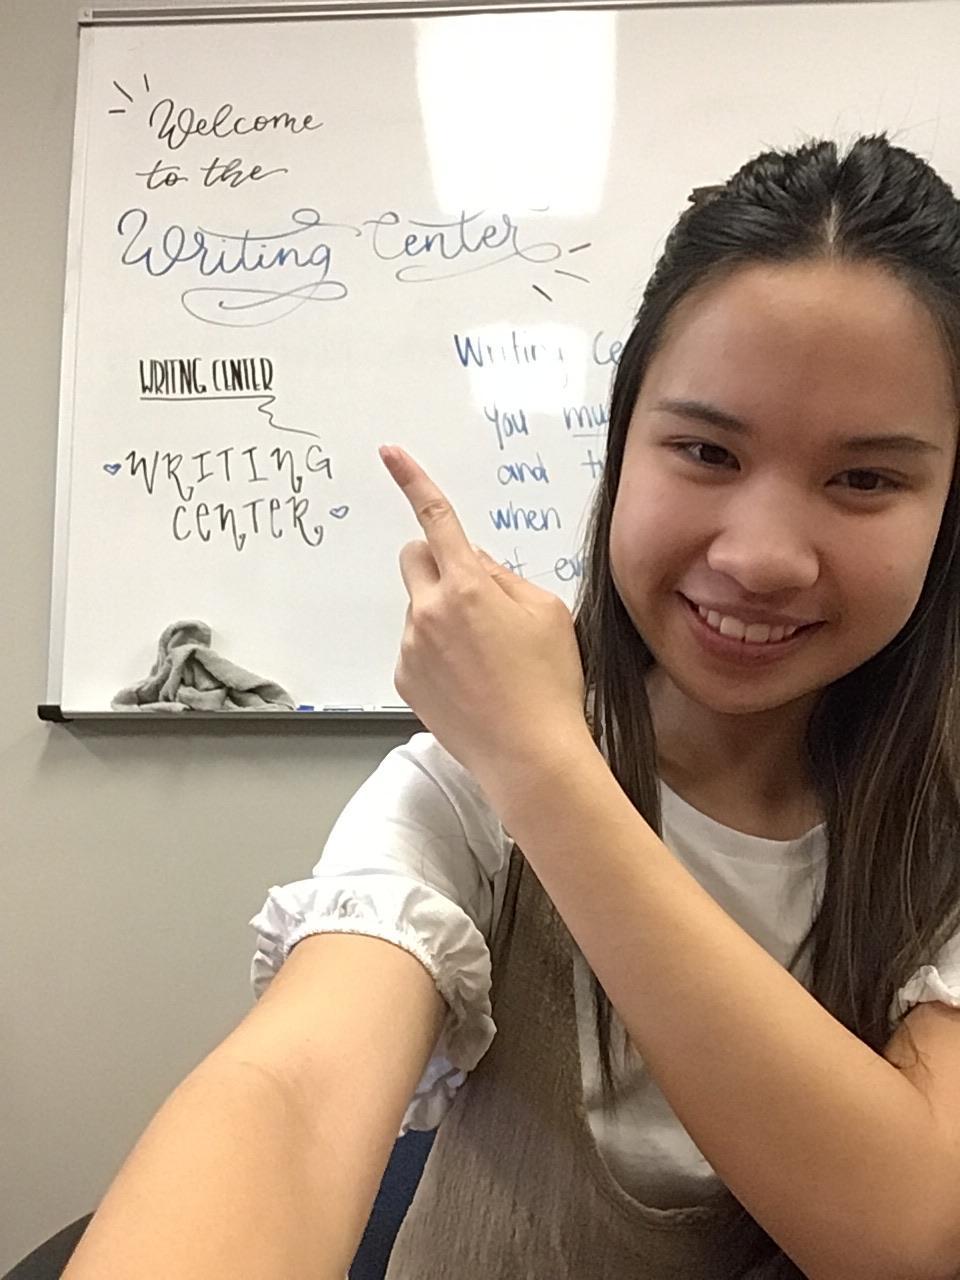 Welcome
to the
Writing Center
WRITNG CENTER
WRITING
CENTER
Writing
you
and
when